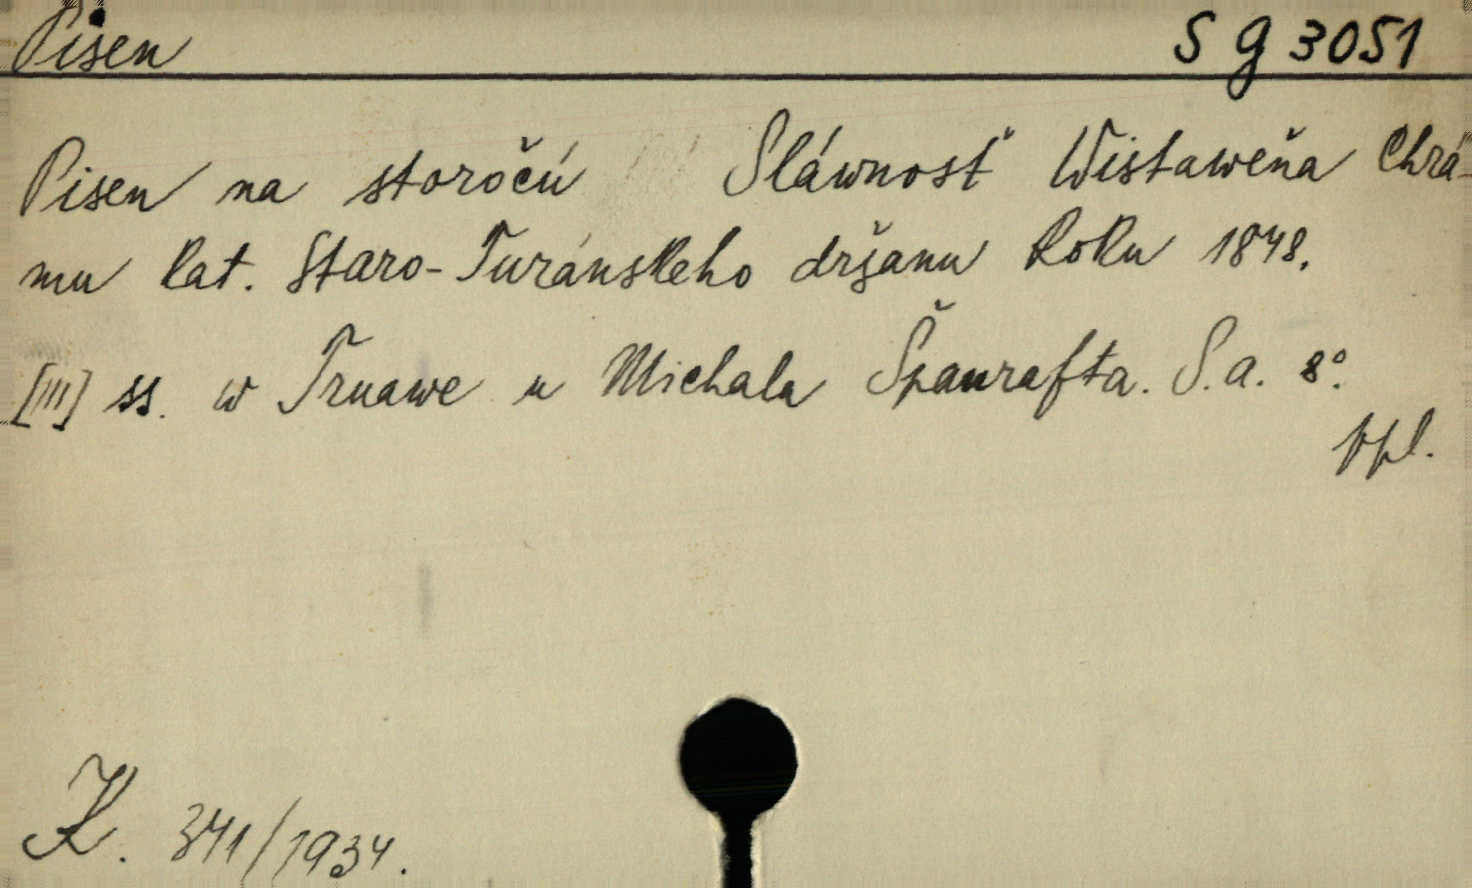 Pisen
S g 3051
Pisen na storočú Sláwnosť Wistaweňa Chrá-
mu kat. Staro-Turánskeho držanu Roku 1848.
[III] ss. w Trnawe u Michala Španrafta. S. a. 8°.
ppl.
K. 341/1934.